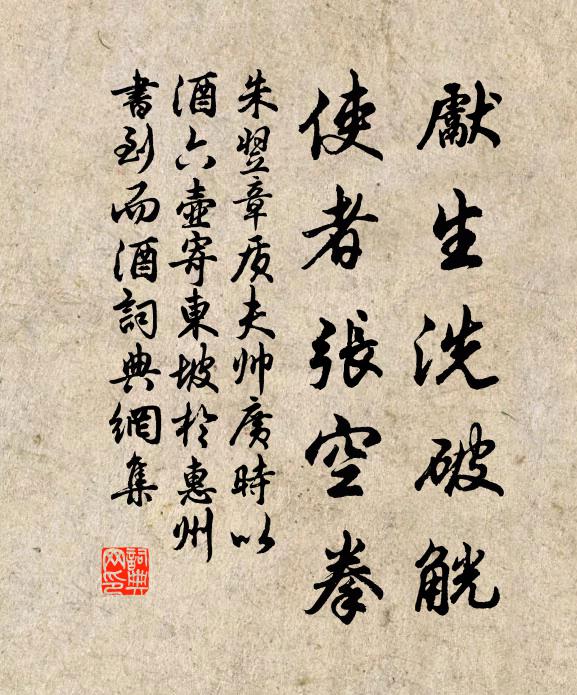 獻生洗破觥
使者張空拳
朱翌章质夫帅廣時以
酒六壺寄東坡於惠州
書到而酒詞典網集
詞典
网印